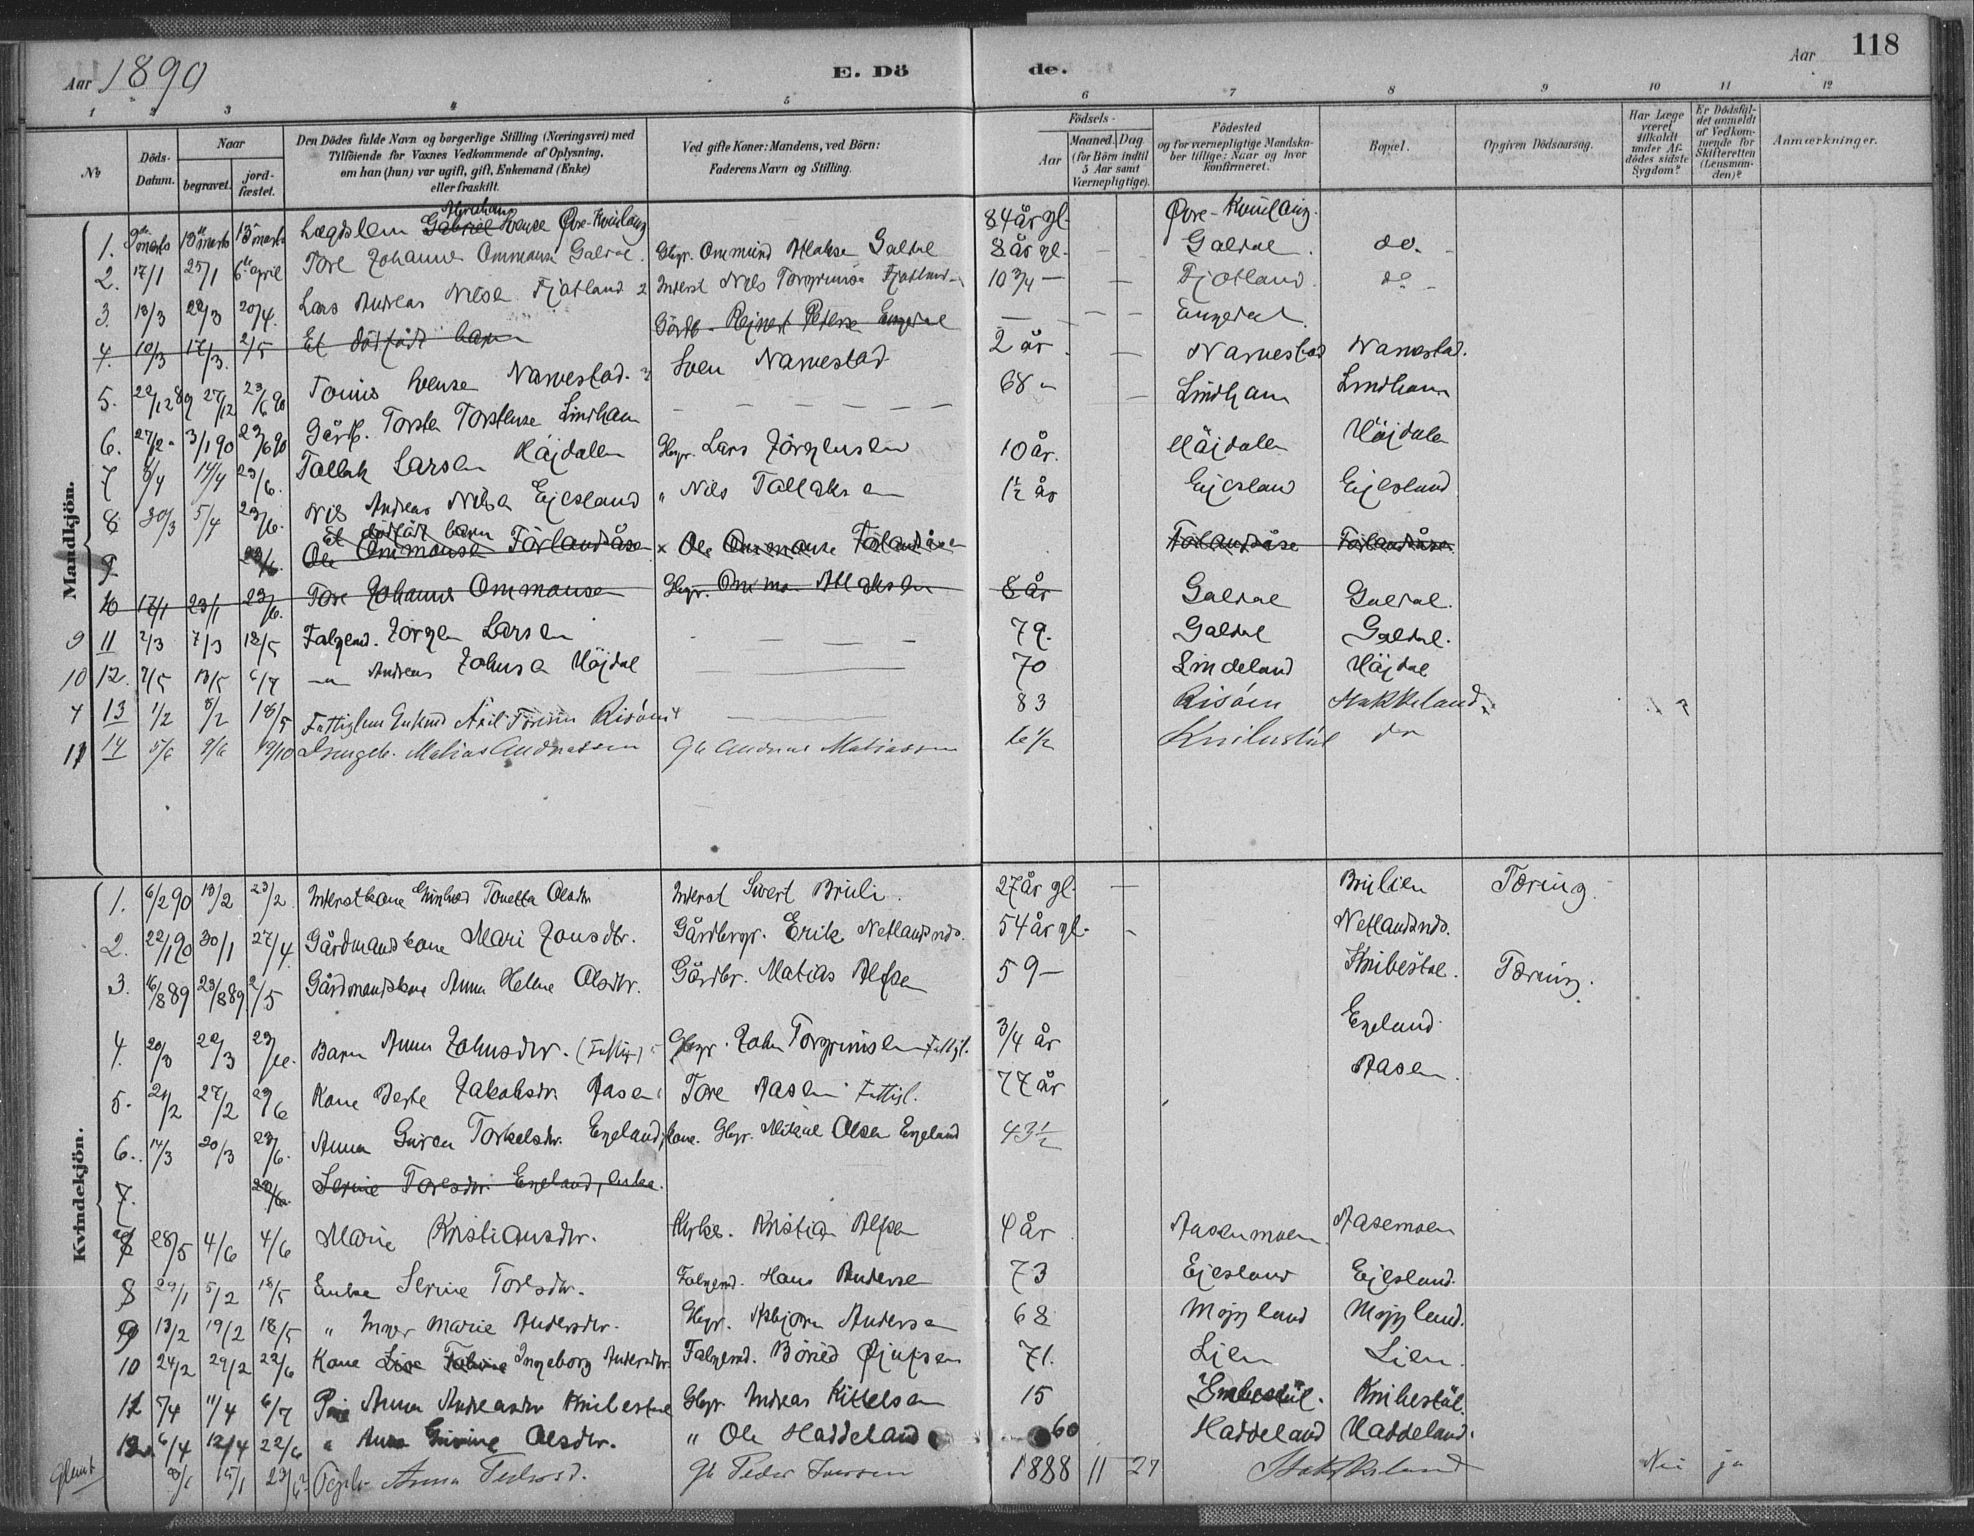 Aar 1890 E. Döde. Aar 118
1 2 3 4 5 6 7 8 9 10 11 12
No Döds-Datum. Naar begravet. jordfæstet. Den Dödes fulde Navn og borgerlige Stilling (Næringsvei) med Tilföiende for Voxnes Vedkommende af Oplysning, om han (hun) var ugift, gift, Enkemand (Enke) eller fraskilt. Ved gifte Koner: Mandens, ved Börn: Faderens Navn og Stilling. Födsels- Aar Maaned. Dag (for Börn indtil 5 Aar samt Værnepligtige). Födested og for værnepligtige Mandskaber tillige: Naar og hvor konfirmeret. Bopæl. Opgiven Dödsaarsag. Har Læge været tilkaldt under Afdödes sidste Sygdom? Er Dödsfaldet anmeldt af Vedkommende for Skifteretten (Lensmanden)? Anmærkninger.
Mandkjön.
1. 9de marts 13de marts 13de marts Lægdslem Gabriel Abraham Øvre-Kvinlaug 84 år gl. Øvre-Kvinlaug
2. 17/1 25/1 6te april Tore Johannes Ommunds Galdal Gbgr. Ommund Atlakse Galdal 8 år gl. Galdal do.
3. 13/3 22/3 20/4. Lars Andreas Nilse Fjotland Inderst Nils Torgrimsa Fjotland 10 3/4 Fjotland do
4. 10/3 17/3. 2/5 Et dödfödt barn Gårdb. Reinert Peterse Engedal Engedal
5. 22/12 89 27/12 23/6 90 Tonnes Svense Narvestad Sven Narvestad 2 år Narvestad Narvestad.
6. 27/2 3/1 90 23/6 90 Gårb. Torsten Torstense Lindham 68 Lindham Lindham
7 8/4 14/4 23/6. Tallak Larsen Höjdalen Gbgr. Lars Jörgensen 10 år. Höjdalen Höjdalen
8 30/3 5/4 23/6. Nils Andreas Nilsen Eiesland " Nils Tallaksen 1½ år Eiesland Eiesland
9 23/6. Et dödfödt barn Ole Ommunse Förlandsåse x Ole Ommunse Förlandsåse Förlandsåse Förlandsåse
10 17/1 23/1 23/6. Tore Johannes Ommunse Gbgr. Ommun Atlaksen 8 år Galdal Galdal.
9 11 2/3 7/3 18/5 Folgemd. Jörgen Larsen 79. Galdal Galdal.
10 12. 7/5 13/5 6/7 Andreas Johnsa Höjdal 70 Lindeland Höjdal
4 13 1/2 8/2 18/5 Fattiglem Enkmd Axel Risöen 83 Risöen Stakkeland
11 14 5/6 9/6 19/10 Ungk. Matias Andreassen Gb Andreas Matiassen 16½ Knibestöl do
Kvindekjön.
1. 6/2 90 13/2 23/2 Inderstkone Gunhild Tonetta Olsdtr Inderst Sivert Brüli 27 år gl. Brülien Tæring
2. 22/1 90 30/1 27/4. Gårdmandskone Mari Jonsdtr. Gårdbrgr. Erik Netlandsnds. 54 år gl. Netlandsnds.
3. 16/8 89 23/8 89. 2/5 Gårdmandskone Anna Helene Olsdtr. Gårdbr. Matias Alfsen 59 Knibestöl. Tæring.
4. 20/3 22/3 23/6. Barn Anna Johnsdtr. (Fattig) Gbgr. John Torgrimsen Fattigl. 3/4 år Egeland
5. 21/2 27/2 23/6 Kone Berte Jakobsdtr. Aasen Tore Aasen Fattigl. 77 år Aasen.
6. 14/3 20/3 23/6. Anna Guren Torkelsdtr. Egeland, kone. Gbgr. Mikal Olsen Egeland 43½
7. 23/6. Serine Toresdtr. Egeland, enke.
7 28/5 4/6 4/6 Marie Kristiansdtr. Kirkes. Kristian Alfsen 4 år Aasenmoen Aasemoen
8 29/1 5/2 18/5 Enke Serine Toresdtr. Folgemd. Hans Andersen 73 Eiesland Eiesland.
9 13/2 19/2 18/5 " Inger Marie Andersdtr. Gbgr. Asbjörn Andersen 68 Mygland Mygland.
10 24/2 29/2 22/6 Kone Lise Ingeborg Andersdtr. Folgemd. Bören 71. Lien Lien.
11 5/4 11/4 6/7 Pige Anna Andreasdtr Knibestöl Gbgr. Andreas Kittelsen 15 Knibestöl. Knibestöl.
12 6/4 12/4 22/6 " Anna Olsdtr. " Ole Haddeland 60 Haddeland Haddeland.
glemt 15/1 23/6 Anna Pedersd. Gb Peder Iversen 1888 11 27 Stakkeland Nei ja